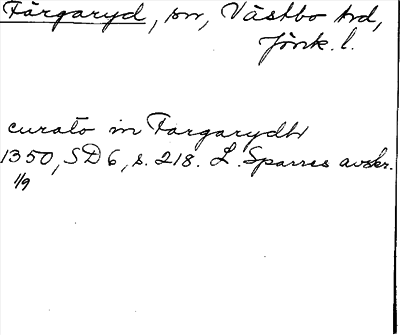 Färgaryd, sn, Västbo hd,
Jönk. l.
curato in Fargarydh
1350, SD 6, s. 218. L. Sparres avskr.
1/9